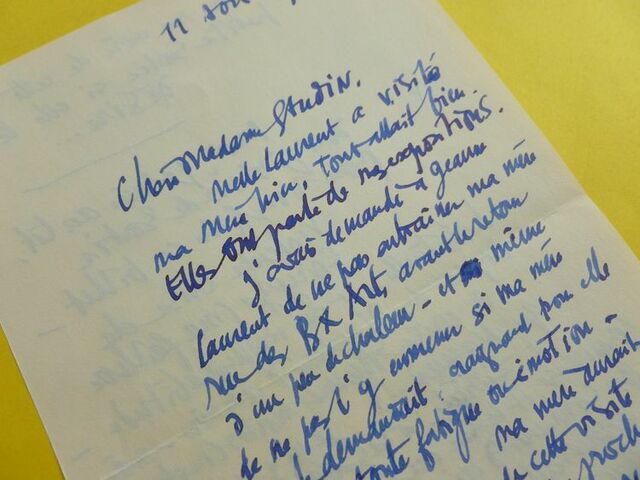 11 aou
Chère Madame Studin.
Melle Laurent a visité
ma mère hier, tout allait bien.
Elles ont parlé de nos expositions.
J'avais demandé à Jeanne
Laurent de ne pas entraîner ma mère
rue des Bx Arts, avant le retour
d'un peu de chaleur - et même
de ne pas l'y emmener si ma mère
le demandait, craignant pour elle
toute fatigue ou émotion -
ma mère aurait
de cette visite
proch